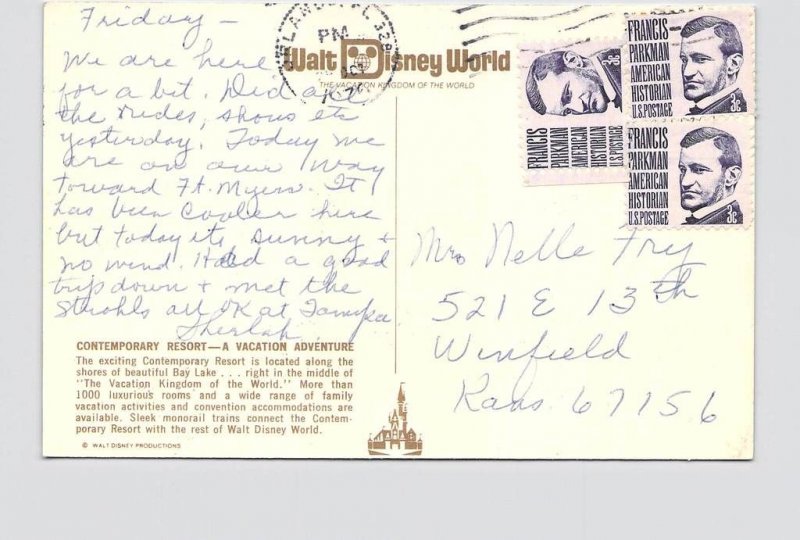 Friday -
We are here
for a bit. Did all
the rides, shows etc
yesterday. Today we
are on our way
toward Ft. Myers. It
has been cooler here
but today its sunny +
no wind. Had a good
trip down + met the
Strohls all OK at Tampa
CONTEMPORARY RESORT—A VACATION ADVENTURE
The exciting Contemporary Resort is located along the
shores of beautiful Bay Lake . . . right in the middle of
"The Vacation Kingdom of the World." More than
1000 luxurious rooms and a wide range of family
vacation activities and convention accommodations are
available. Sleek monorail trains connect the Contem-
porary Resort with the rest of Walt Disney World.
© WALT DISNEY PRODUCTIONS
PM
OCT
Walt Disney World
THE VACATION KINGDOM OF THE WORLD
FRANCIS
PARKMAN
AMERICAN
HISTORIAN
U.S. POSTAGE
3c
FRANCIS
PARKMAN
AMERICAN
HISTORIAN
U.S. POSTAGE
3c
FRANCIS
PARKMAN
AMERICAN
HISTORIAN
U.S. POSTAGE
3c
Mrs Nelle Fry
521 E 13th
Winfield
Kans 67156